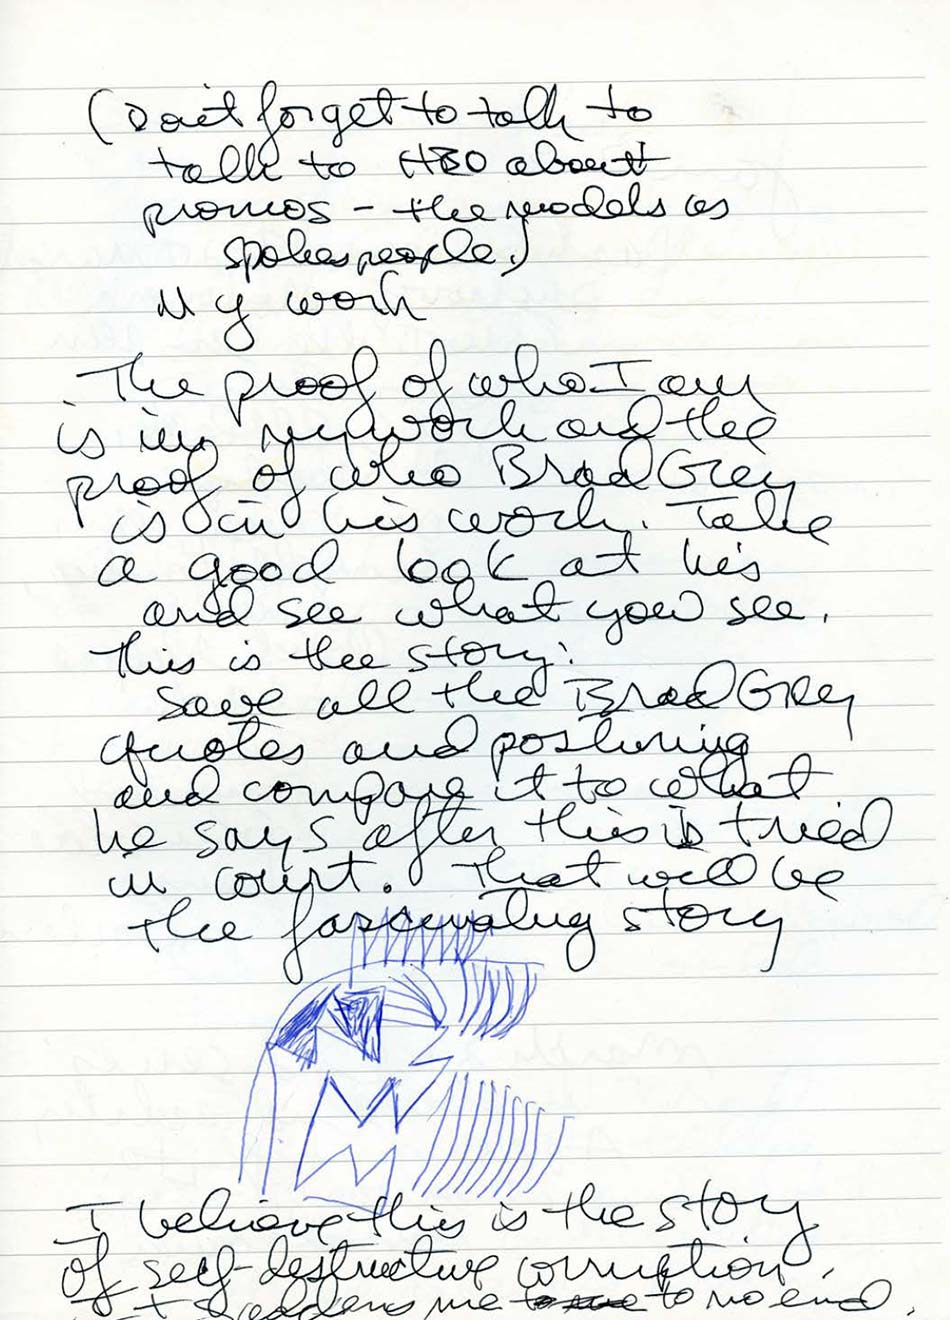 (Don't forget to talk to
talk to HBO about
promos - the models as
spokespeople.)
My work
The proof of who I am
is in my work and the
proof of who Brad Grey
is in his work. Take
a good look at his
and see what you see.
This is the story:
Save all the Brad Grey
quotes and posturing
and compare it to what
he says after this is tried
in court. That will be
the fascinating story
I believe this is the story
of self-destructive corruption.
It saddens me to no end.